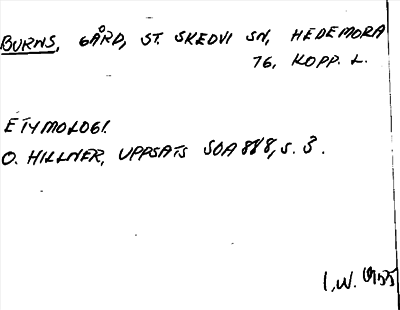 BURNS, GÅRD, ST. SKEDVI SN, HEDEMORA
76, KOPP. L.
ETYMOLOGI.
O. HILLNER, UPPSATS SOA 888, S. 3.
I.W. 1955